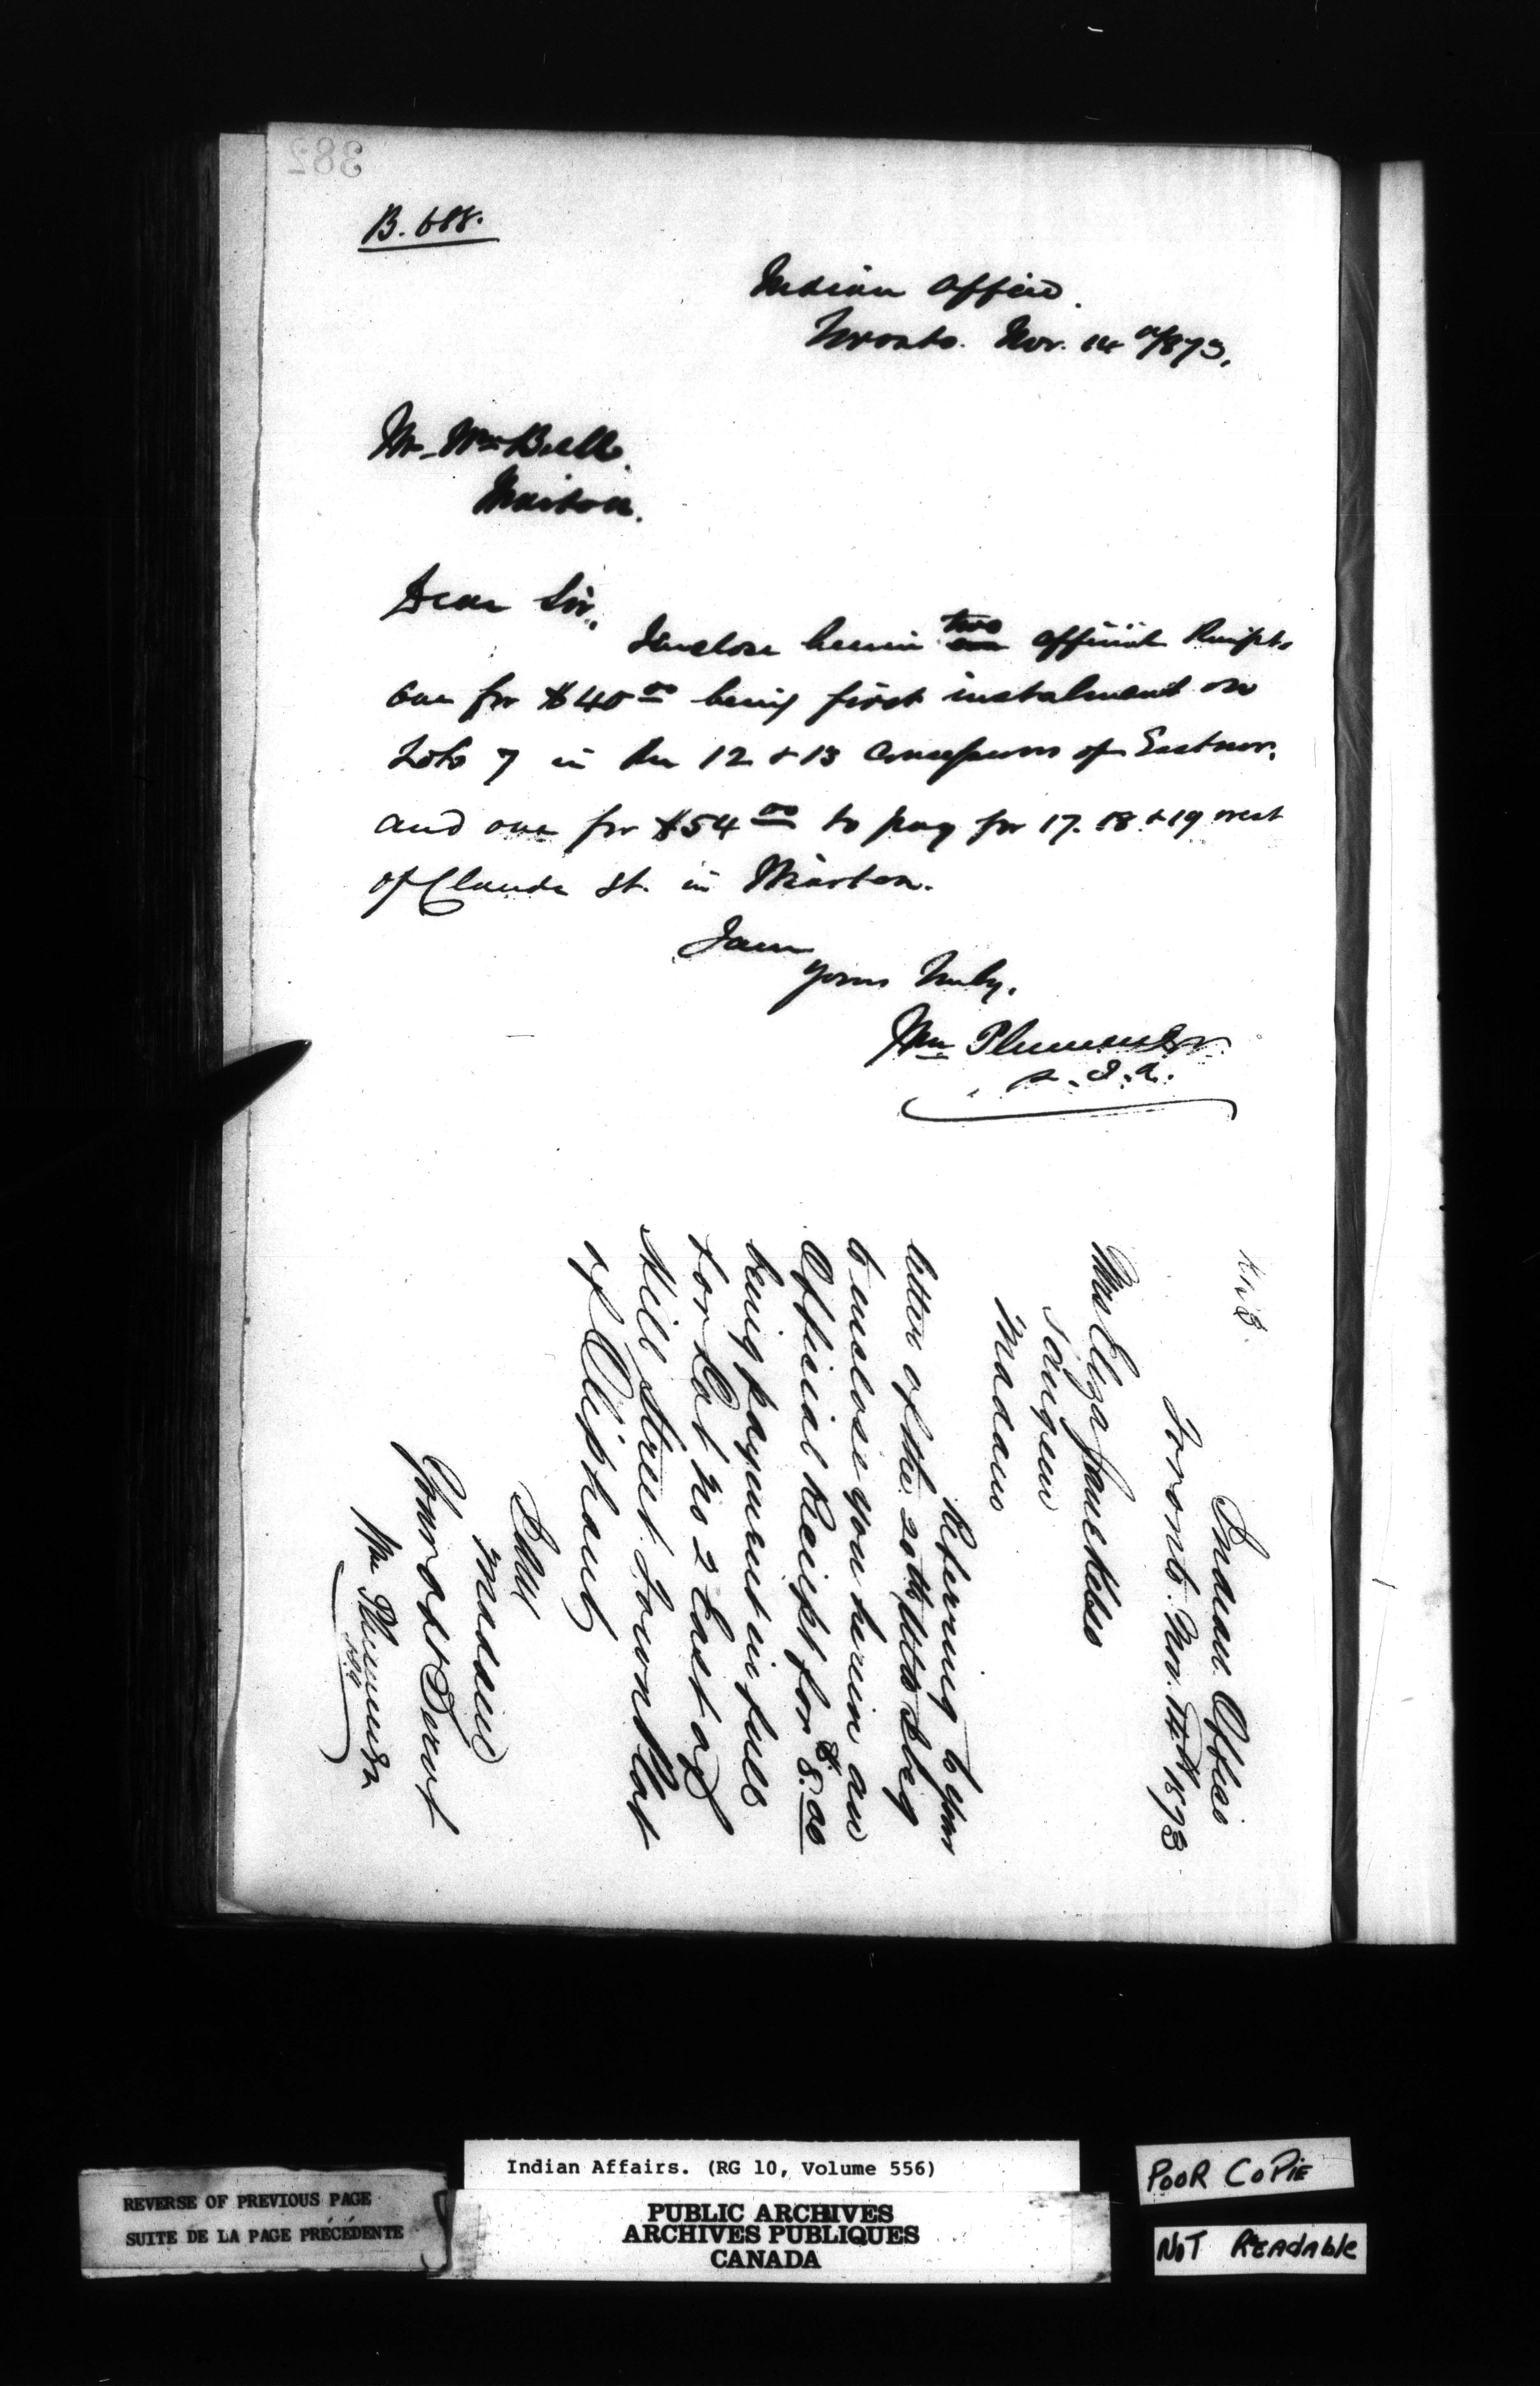 382
B. 688.
Indian Office.
Toronto. Nov. 14th/873.
Mr. Wm Bull.
Wiarton.
Dear Sir,
I enclose herein two official Receipts
one for $40.00 being first instalment on
Lots 7 in the 12 & 13 Concessions of Eastnor.
and one for $54.00 to pay for 17. 18 & 19 west
of Claude St. in Wiarton.
I am
yours truly,
Wm Plummer
S. I. A.
Indian Office
Toronto. Nov. 14th 1873
Mrs Eliza Jane
Saugeen
Madam
Referring to your
letter of the 20th Ulto I beg
to enclose you herein an
Official Receipt for $8.00
being payment in full
for Lot No 2 East of
Mill Street Town Plot
of Oliphant
I am
Madam
Your obt Servt
Wm Plummer
Indian Affairs. (RG 10, Volume 556)
REVERSE OF PREVIOUS PAGE
SUITE DE LA PAGE PRÉCÉDENTE
PUBLIC ARCHIVES
ARCHIVES PUBLIQUES
CANADA
POOR COPIE
NOT READABLE